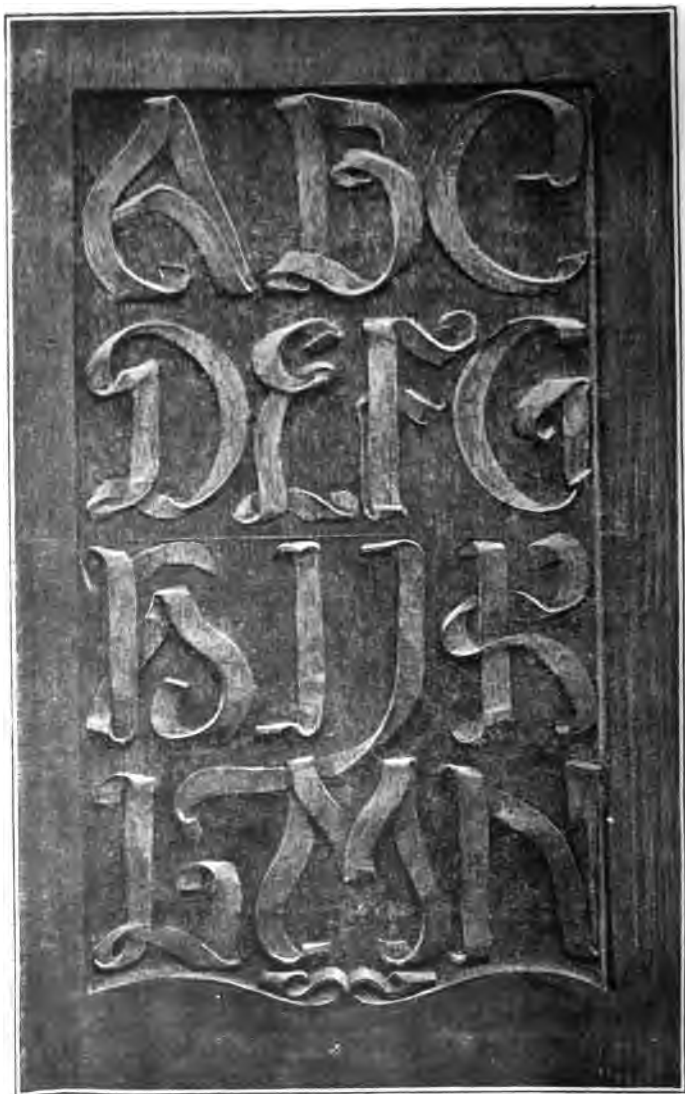 A B C
D E F G
H I J K
L M N